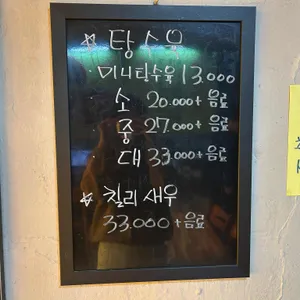 ☆ 탕수육
· 미니탕수육 13.000
· 소 20.000+ 음료
· 중 27000+ 음료
· 대 33.000+ 음료
☆ 칠리새우
33.000+음료